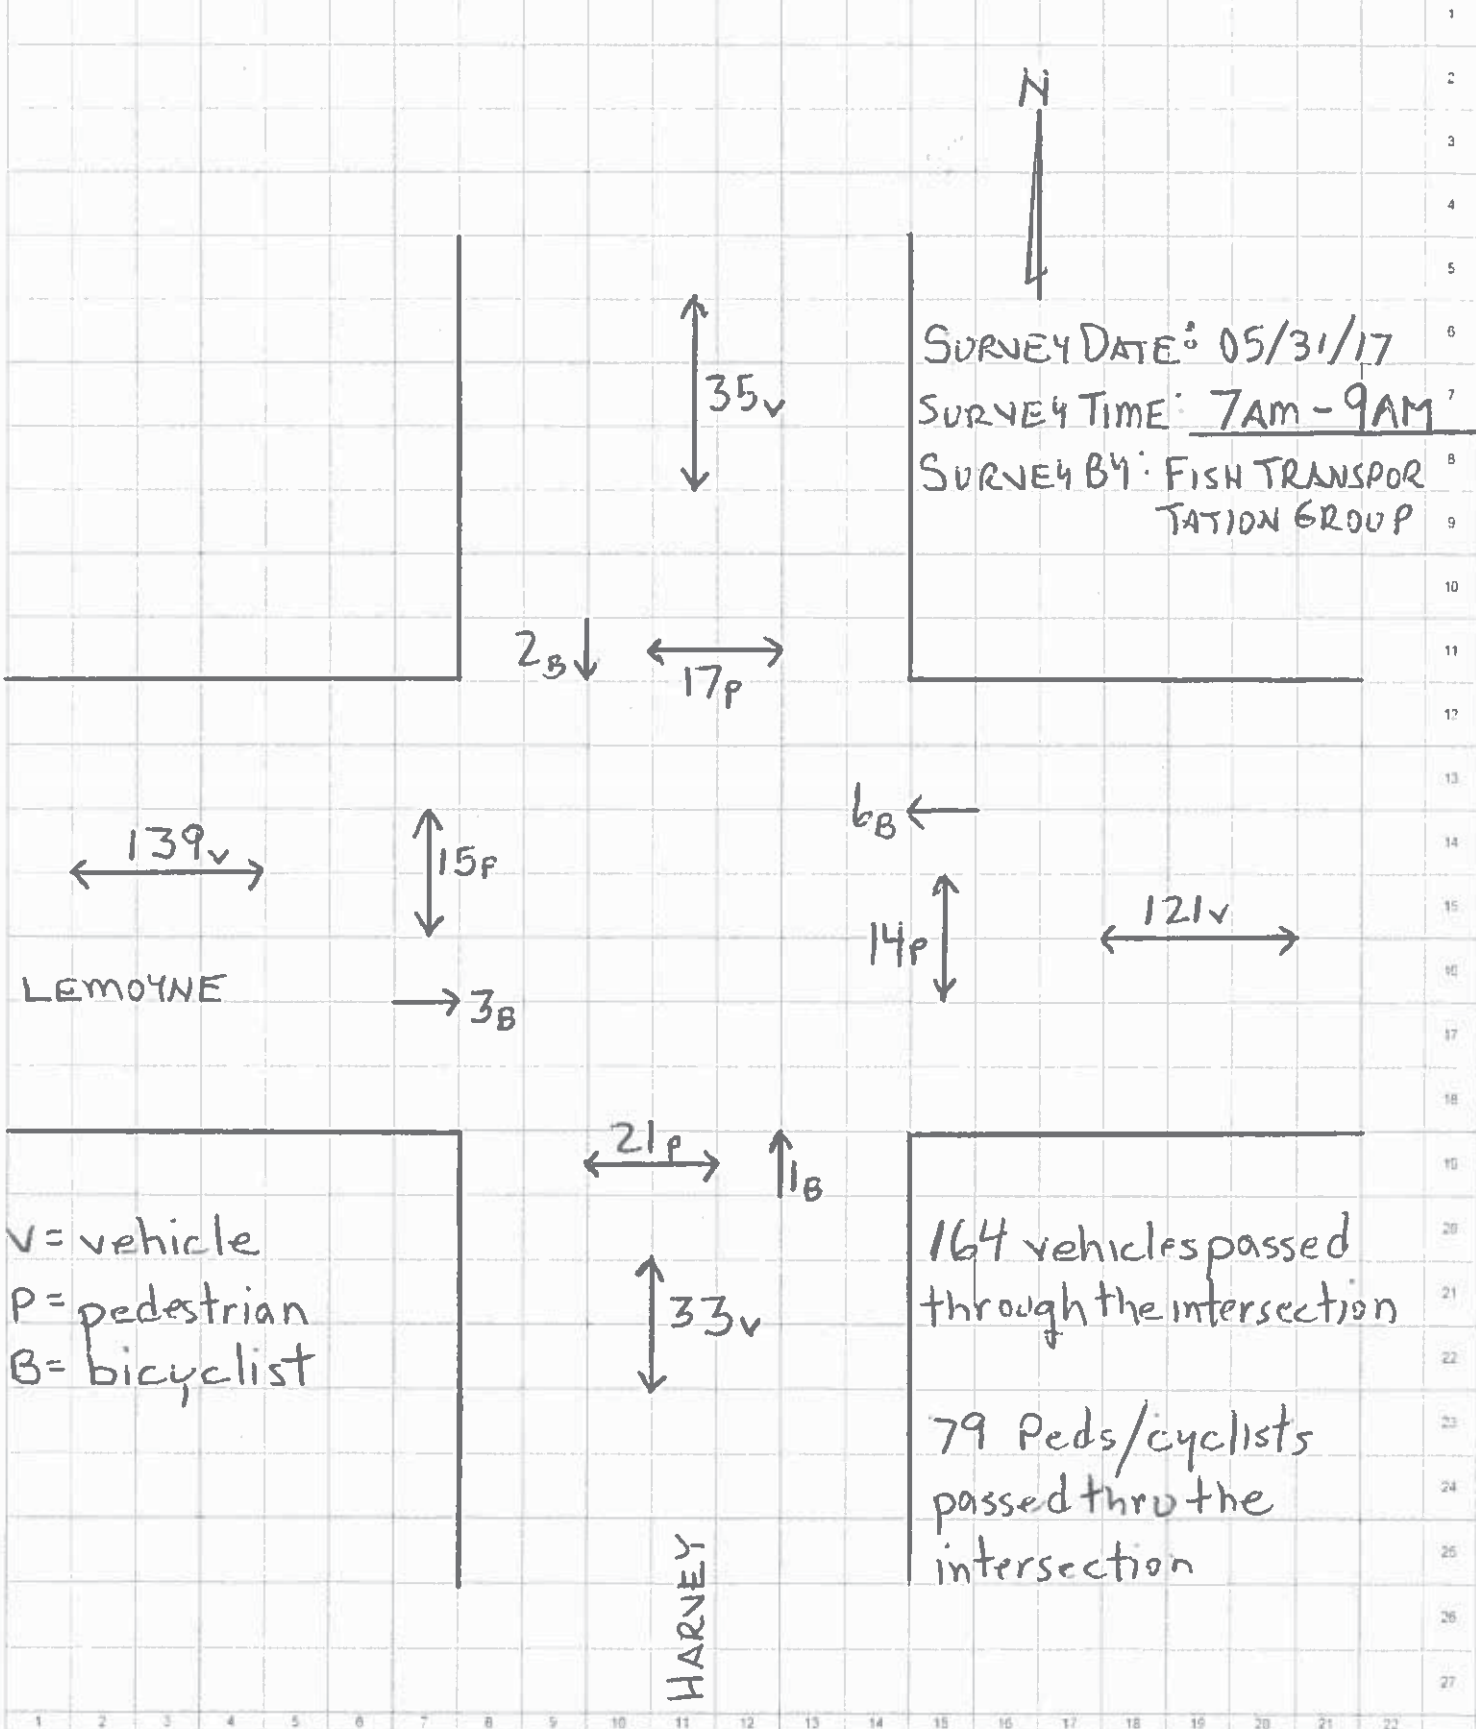 N
SURVEY DATE: 05/31/17
35v
SURVEY TIME: 7AM - 9AM
SURVEY BY: FISH TRANSPOR
TATION GROUP
2B
17P
6B
139v
15P
121v
14P
LEMOYNE
3B
21P
1B
V = vehicle
P = pedestrian
B = bicyclist
33v
164 vehicles passed
through the intersection
79 Peds/cyclists
passed thru the
intersection
HARVEY
1
2
3
4
5
6
7
8
9
10
11
12
13
14
15
16
17
18
19
20
21
22
23
24
25
26
27
1 2 3 4 5 6 7 8 9 10 11 12 13 14 15 16 17 18 19 20 21 22